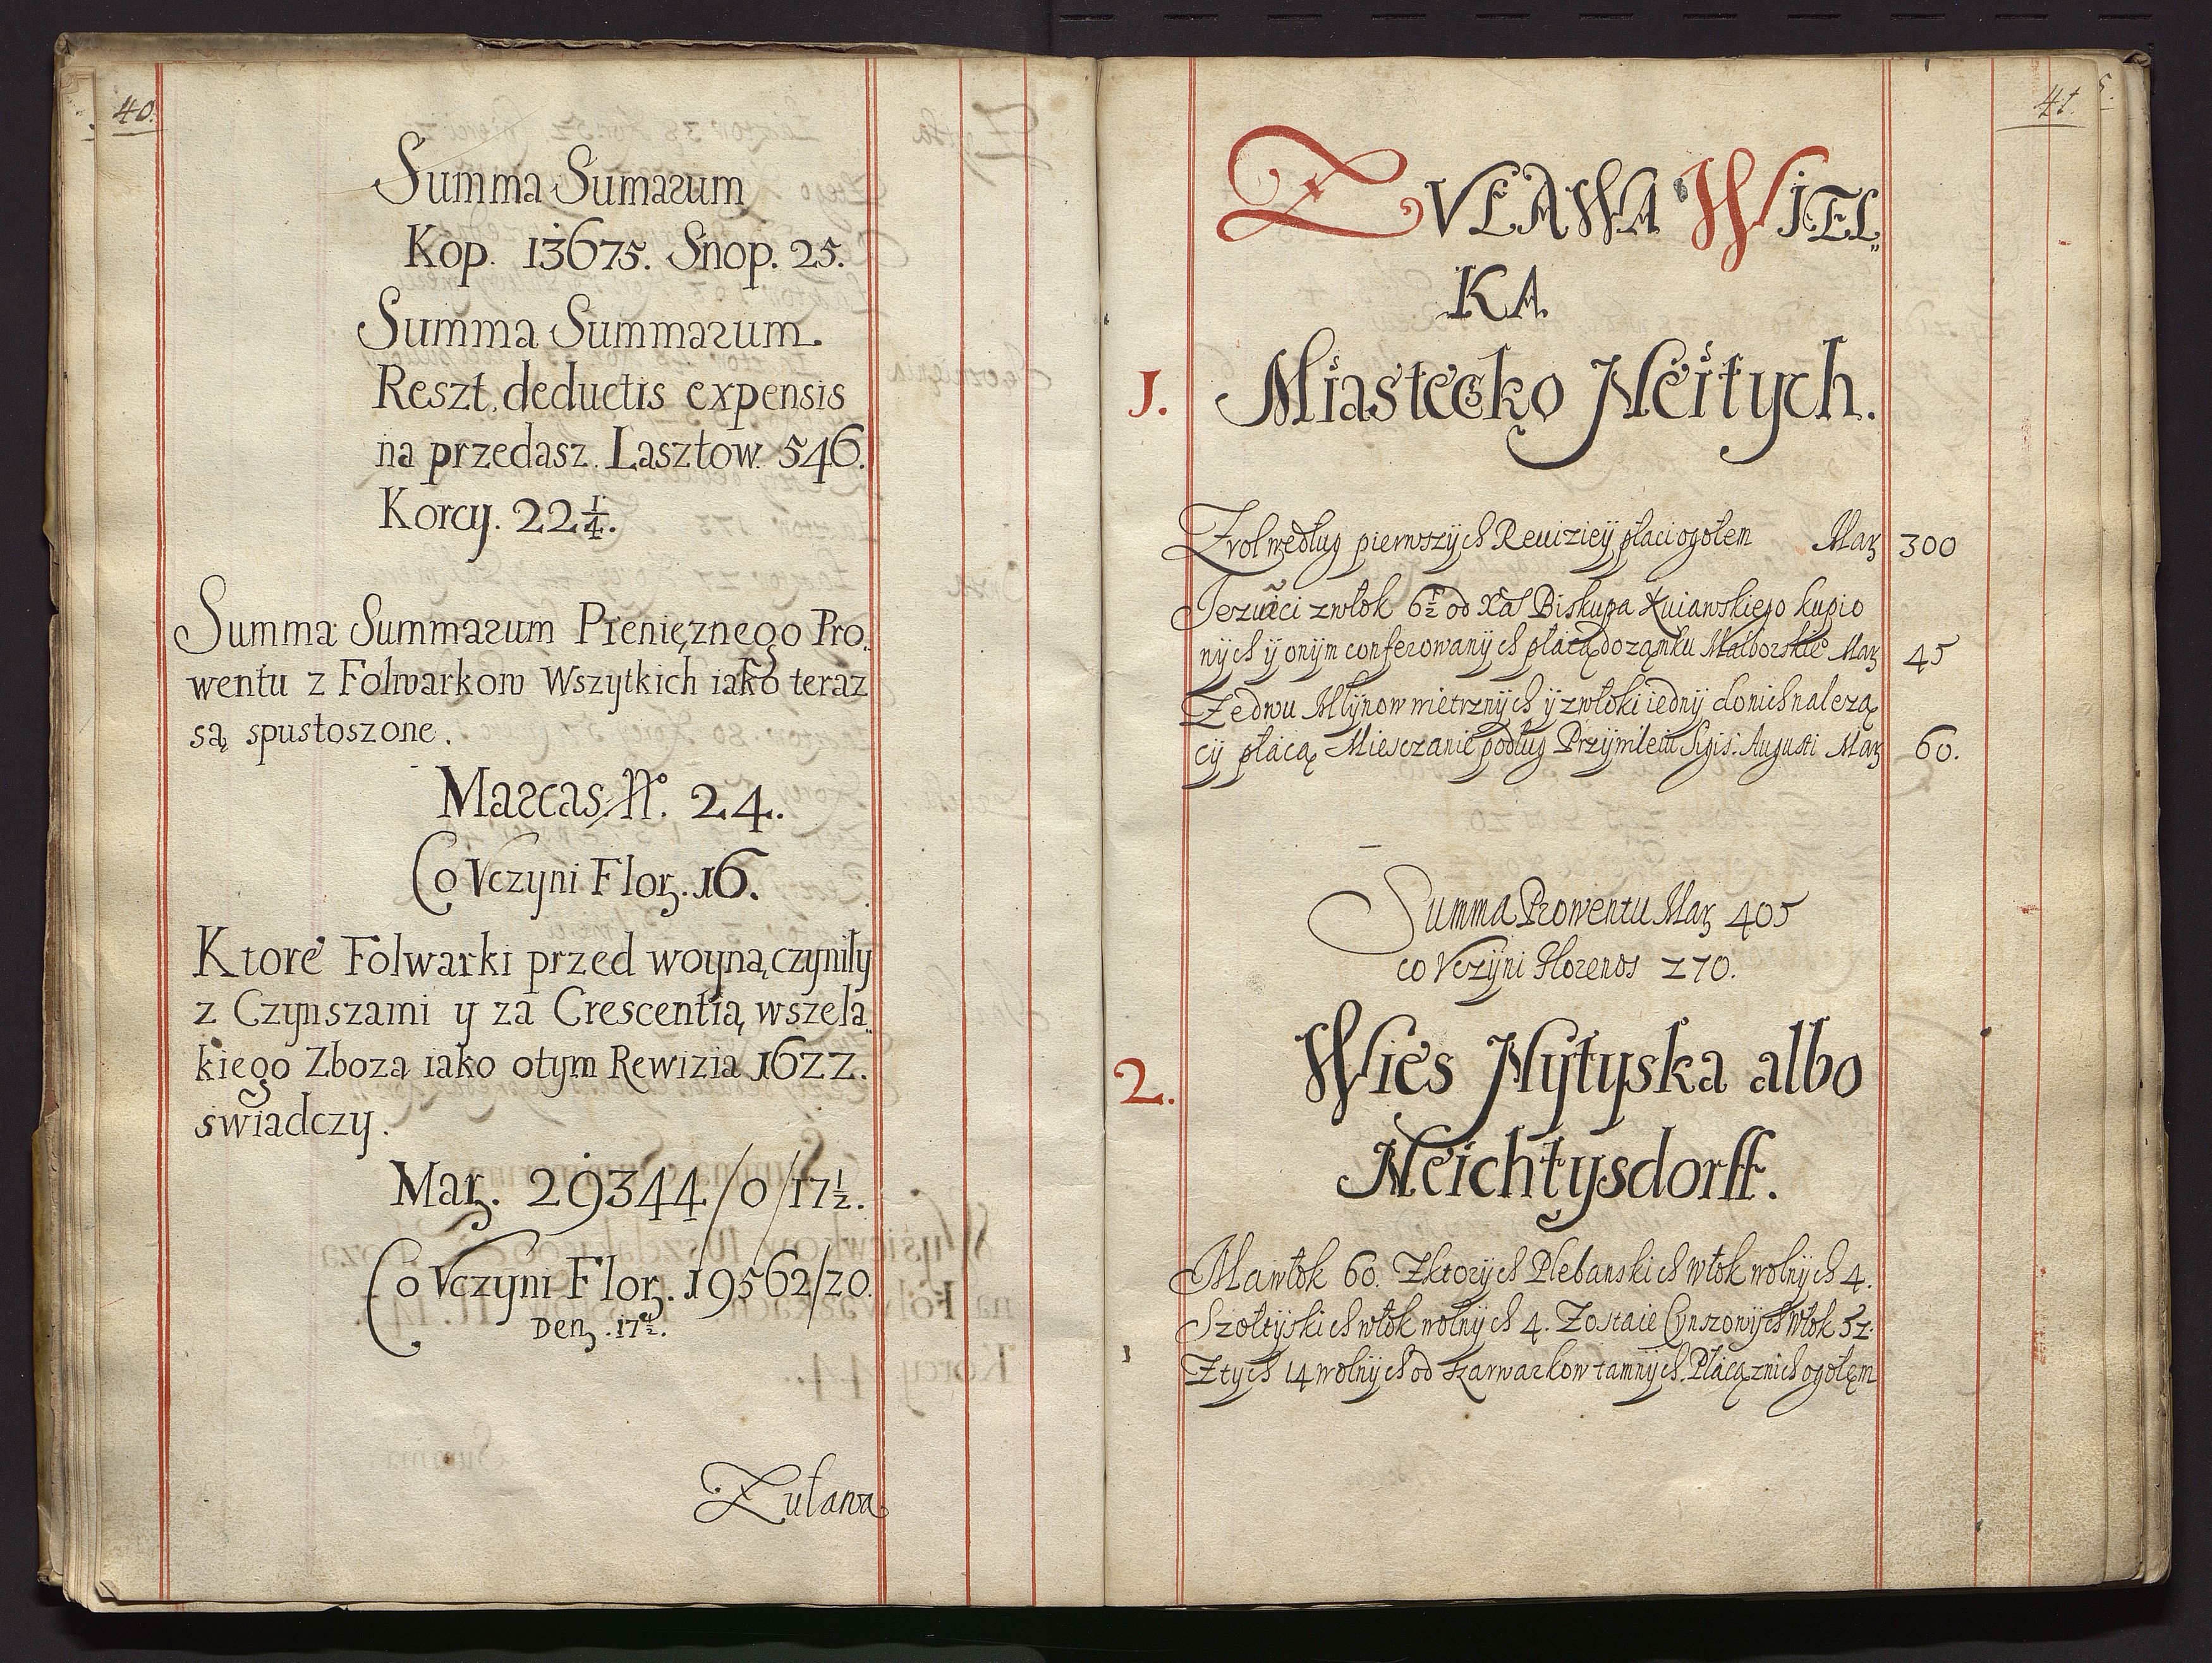 40.
Summa Sumarum
Kop. 13675. Snop. 25.
Summa Summarum.
Reszt. deductis expensis
na przedasz. Lasztow. 546.
Korcy. 22 1/4.
Summa Summarum Pienięznego Pro.
wentu z Folwarkow Wszytkich iako teraz
są spustoszone.
Marcas. No. 24.
Co Vczyni Flor. 16.
Ktore Folwarki przed woyną czyniły
z Czynszami y za Crescentią wszela
kiego Zboza iako otym Rewizia 1622.
swiadczy.
Mar. 29344/0/17 1/2.
Co Vczyni Flor. 19562/20.
Den. 17 1/2.
Zuława
41.
ZVŁAWA WIEL„
KA
1. Miastecko Neitych.
Z rol według pierwszych Reuiziey płaci ogołem Mar 300
Iezuici z włok 6 1/2 od Xa Biskupa Kuiawskiego kupio
nych y onym conferowanych płacą do ząmku Malborskie Mar 45
Ze dwu Młynow wietrznych y z włoki iedny do nich nalezą
cy płacą Miesczanie podług Przymileiu Sigis: Augusti Mar 60.
Summa Prowentu Mar 405
co Vczyni Florenos 270.
2. Wies Nytyska albo
Neichtysdorff.
Ma włok 60. Z ktorych Plebanskich włok wolnych 4.
Szołtyskich włok wolnych 4. Zostaie Cynszowych włok 52.
Z tych 14 wolnych od szarwarkow tamnych. Płacą z nich ogołem